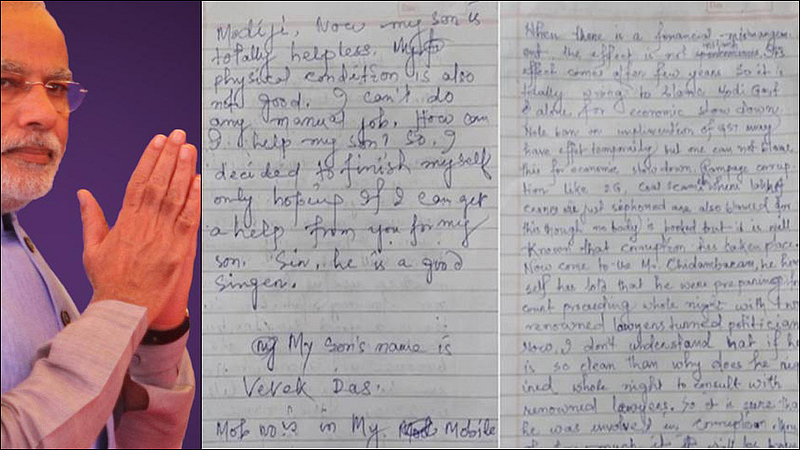 Modiji, Now my son is
totally helpless, My
physical condition is also
not good. I can't do
any manual job. How can
I help my son? So, I
decided to finish myself
only hoping If I can get
a help from you for my
son. Sir, he is a good
singer.
My Son's name is
Vevek Das.
Mob no is in My Mobile
When there is a financial mismangem
ent the effect is not instant Its
effect comes after few years So it is
totally wrong to blame Modi Govt
alone for economic slow down.
Note ban on implication of GST may
have effect temporarily but one can not blame
this for economic slowdown. Rampage corrup-
tion like 2G, Coal scam where
crores are just siphoned are also blamed for
this though no body is booked but it is well
known that corruption has taken place
Now come to us Mr. Chidambaram, he him
self has told that he were preparing for
court proceeding whole night with two
renowned lawyers turned politician
Now, I don't understand that if he
is so clean than why does he
whole night to consult with
renowned lawyers. So it is sure that
he was involved in corruption.
will be